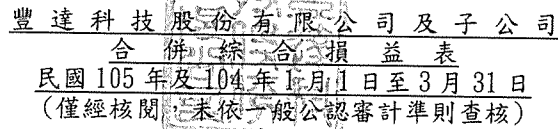 豐達科技股份有限公司及子公司
合併綜合損益表
民國105年及104年1月1日至3月31日
(僅經核閱，未依一般公認審計準則查核)